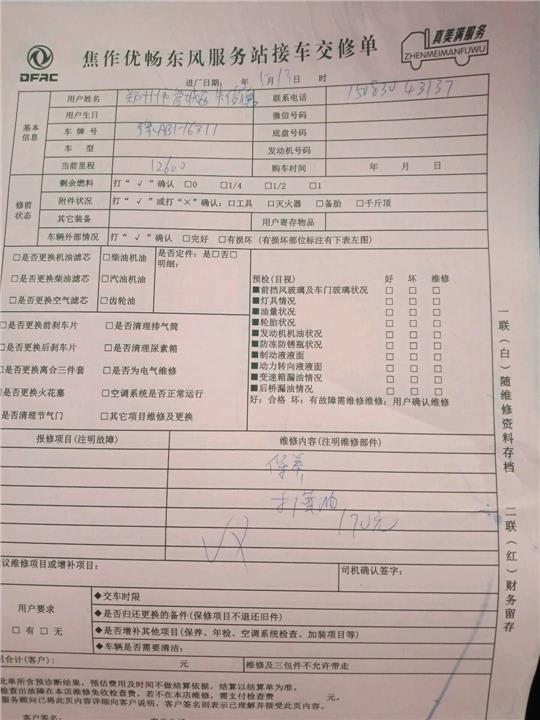 DFAC
焦作优畅东风服务站接车交修单
真美满服务
ZHENMEIMANFUWU
进厂日期： 年 5月13日 时
基本信息
用户姓名
联系电话
用户生日
微信号码
车牌号
底盘号码
车型
发动机号码
当前里程 12600
购车时间 年 月 日
修前状态
剩余燃料 打“√”确认 □0 □1/4 □1/2 □1
附件状况 打“√”或打“×”确认：□工具 □灭火器 □备胎 □千斤顶
其它装备
用户寄存物品
车辆外部情况 打“√”确认 □完好 □有损坏（有损坏部位标注有下表左图）
□是否更换机油滤芯 □柴油机油
□是否更换柴油滤芯 □汽油机油
□是否更换空气滤芯 □齿轮油
是否定件：是□否□
明细：
□是否更换前刹车片 □是否清理排气筒
□是否更换后刹车片 □是否清理尿素箱
□是否更换离合三件套 □是否为电气维修
□是否更换火花塞 □空调系统是否正常运行
□是否清理节气门 □其它项目维修及更换
预检(目视) 好 坏 维修
■前挡风玻璃及车门玻璃状况 □ □ □
■灯具情况 □ □ □
■油量状况 □ □ □
■轮胎状况 □ □ □
■发动机机油状况 □ □ □
■防冻防锈瓶状况 □ □ □
■制动液液面 □ □ □
■动力转向液液面 □ □ □
■变速箱漏油情况 □ □ □
■后桥漏油情况 □ □ □
好：合格 坏：有故障需维修维修：用户确认维修
报修项目(注明故障)
维修内容(注明维修部件)
保养
打黄油
170元
议维修项目或增补项目：
司机确认签字：
用户要求
□有□无
◆交车时限
◆是否归还更换的备件(保修项目不退还旧件)
◆是否增补其他项目(保养、年检、空调系统检查、加装项目等)
◆车辆是否需要清洁：
合计(客户)： 元
维修及三包件不允许带走
此单所含预诊断结果，预估费用及时间不做结算依据，结算以结算单为准。
检查出故障在本店维修免收检查费，若不在本店维修，需支付检查费 元。
服务顾问已将此页内容详细向客户说明，客户签名则表示已理解并接受此页内容。
客户签名：
一联（白）随维修资料存档 二联（红）财务留存